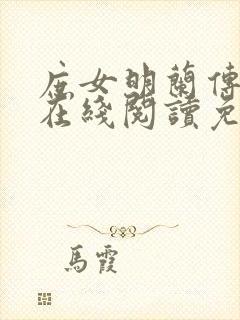 庶女明蘭傳
在綫閱讀免
馬霞